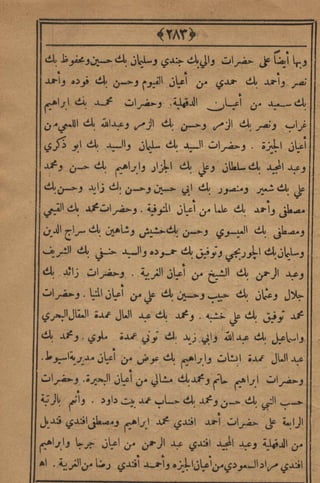 ﴿٢٨٣﴾
وبها أيضاً على حضرات والي بك جندي وسليمان بك حسين ومحفوظ بك
نصر وأحمد بك حمدي من أعيان الفيوم وحسن بك فوده وأحمد
بك سعيد من أعيان الدقهلية . وحضرات محمد بك ابراهيم
غراب ونصر بك الزمر وحسن بك الزمر وعبد الله بك اللمعي من
أعيان الجيزة . وحضرات السيد بك سليمان والسيد بك ابو ذكري
وعبد المجيد بك سلطان وعلي بك الجزار وابراهيم بك حسن ومحمد
علي بك شعير ومنصور بك ابي حسين وحسن بك زايد وحسن بك
مصطفى وأحمد بك علما من أعيان المنوفية . وحضرات محمد بك القيعي
ومصطفى بك العيسوي وحسن بك حشيش وشاهين بك سراج الدين
وسليمان بك الجوربجي وتوفيق بك حموده والسيد حنفي بك الشريف
وعبد الرحمن بك الشيخ من أعيان الغربية . وحضرات زائد بك
جلال وعثمان بك حبيب وحسين بك علي من أعيان المنيا . وحضرات
محمد توفيق بك علي خشبه . ومحمد بك عبد العال عمدة العقال البحري
واسماعيل بك عبد الله وابي زيد بك توني عمدة ملوي . ومحمد بك
عبد العال عمدة وابراهيم بك عوض من أعيان مديرية اسيوط .
وحضرات ابراهيم حاتم ومحمد بك مشالي من أعيان البحيرة . وحضرات
حسب النبي بك حسن ومحمد بك حساب عمد بيت داود . وأنعم بالرتبة
الرابعة على حضرات أحمد افندي محمد ابراهيم ومصطفى افندي قنديل
من الدقهلية وعبد المجيد افندي عبد الرحمن من أعيان جرجا وابراهيم
افندي مراد السعودي من أعيان الجيزه وأحمد أفندي رضا من الغربية . اه